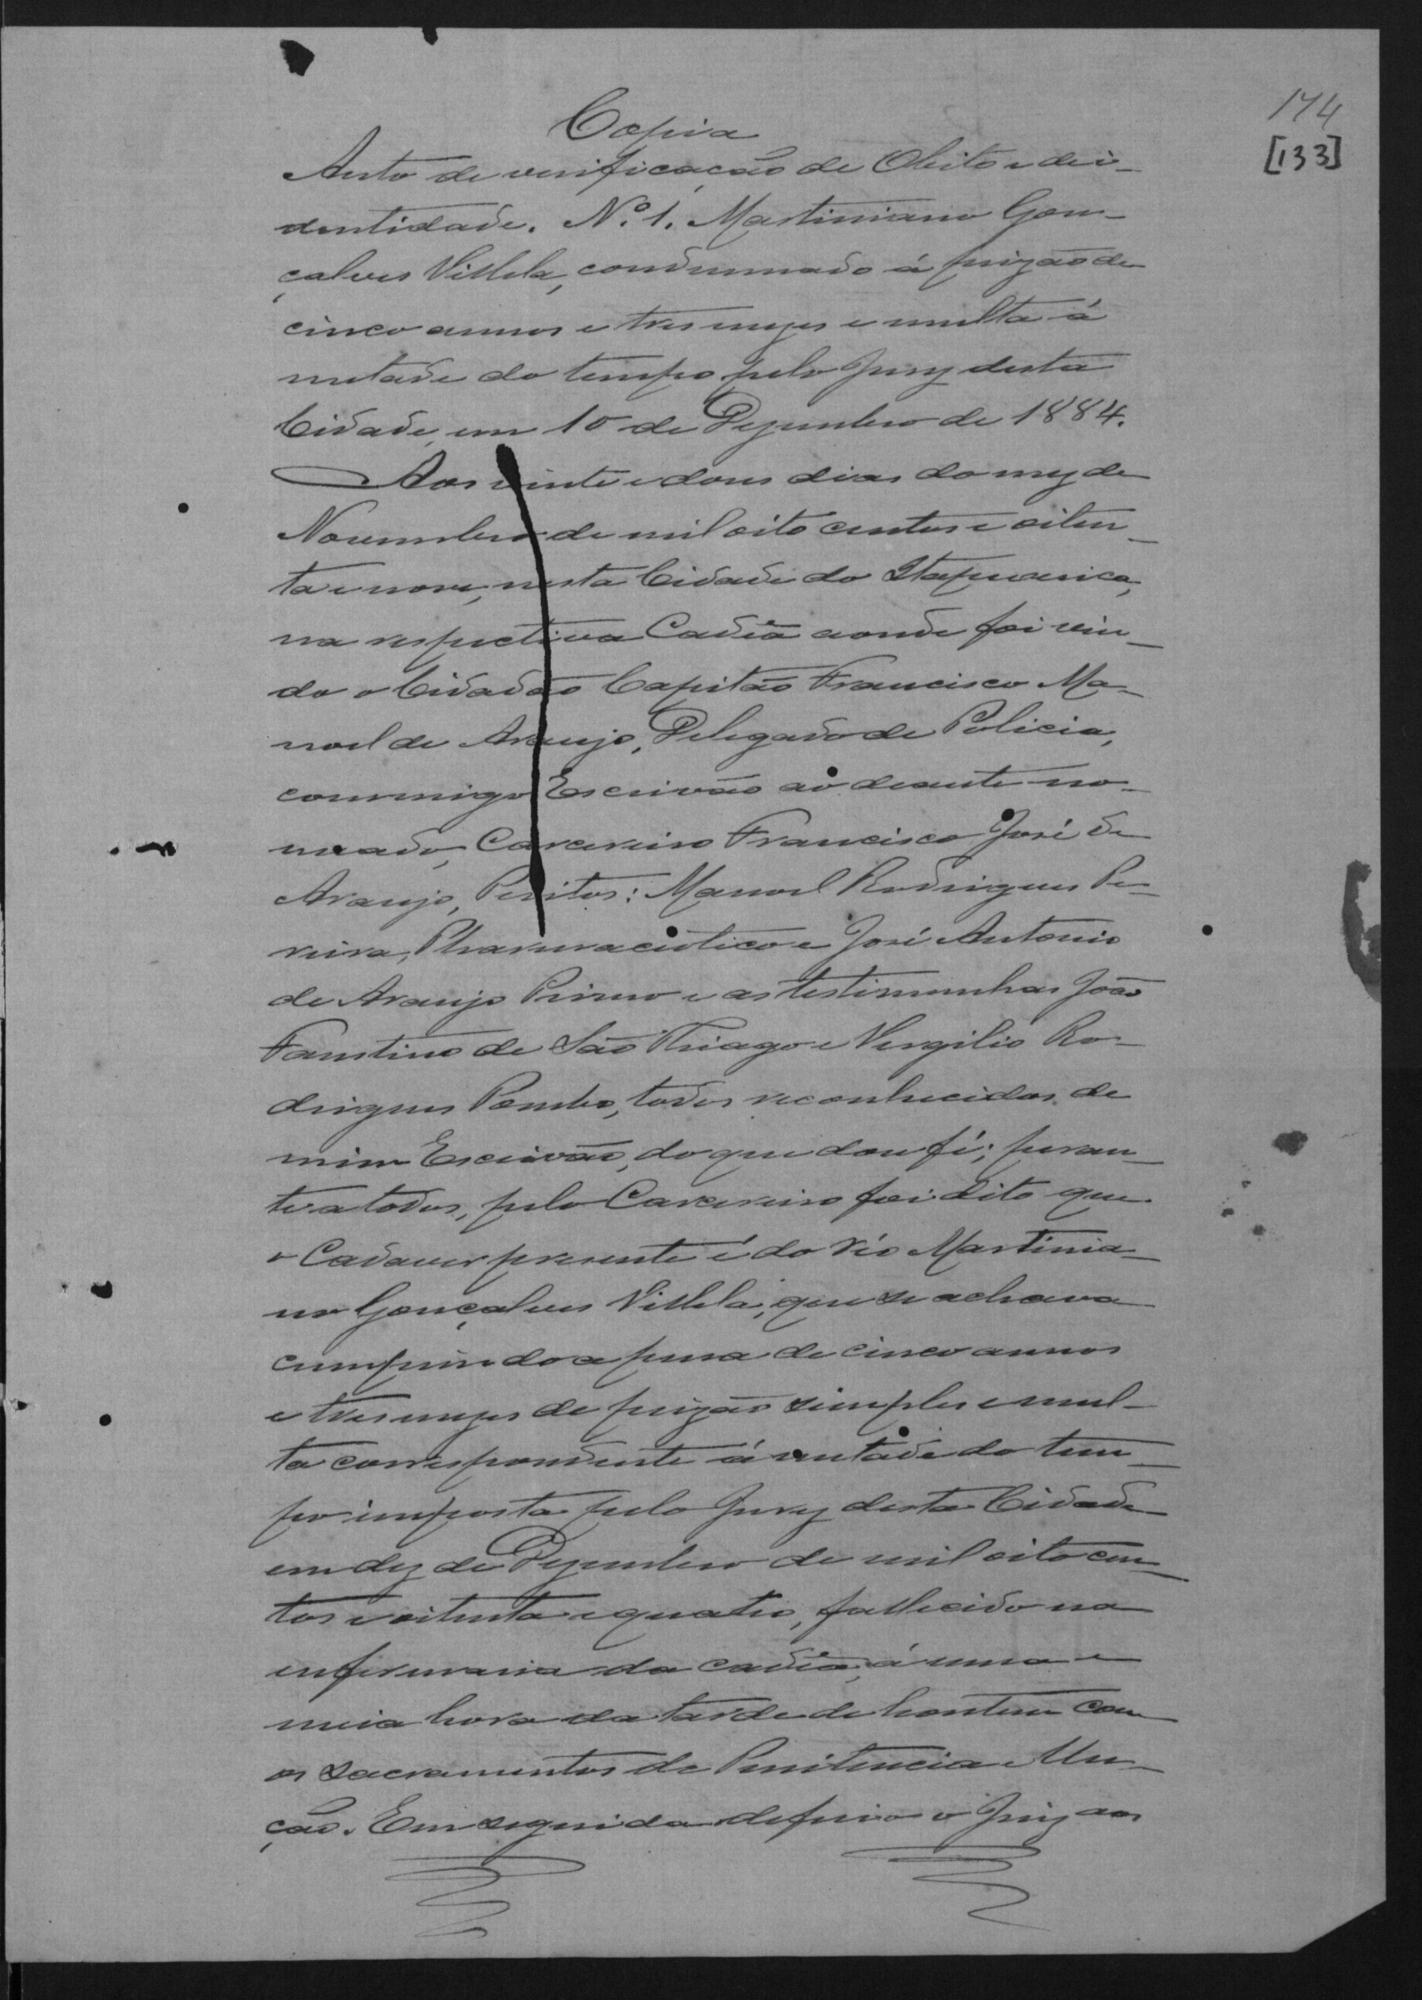 174
[133]
Copia
Auto de verificação de Obito e de i-
dentidade. Nº 1. Martiniano Gon-
çalves Villela, condemnado á prizão de
cinco annos e tres mezes e multa á
metade do tempo pelo Jury desta
Cidade, em 10 de Dezembro de 1884.
Aos vinte e dous dias do mez de
Novembro de mil oito centos e oiten-
ta e nove, nesta Cidade do Itapecerica,
na respectiva Cadêa aonde foi vin-
do o Cidadão Capitão Francisco Ma-
noel de Araujo, Delegado de Policia,
commigo Escrivão ao deante no-
meado, Carcereiro Francisco José de
Araujo, Peritos: Manoel Rodrigues Pe-
reira, Pharmaciotico e José Antonio
de Araujo Primo e as testimunhas João
Faustino de São Thiago e Vergilio Ro-
drigues Pombo, todos reconhecidos de
mim Escrivão, do que dou fé; peran-
te a todos, pelo Carcereiro foi dito que
o Cadaver presente é do réo Martinia-
no Gonçalves Villela, que se achava
cumprindo a pena de cinco annos
e tres mezes de prizão simples e mul-
ta correspondente á metade do tem-
po imposta pelo Jury desta Cidade
em dez de Dezembro de mil oito cen-
tos e oitenta e quatro, fallecido na
enfermaria da cadêa, á uma e
meia hora da tarde de hontem com
os sacramentos de Penitencia e Un-
ção. Em seguida deferio o Juiz aos